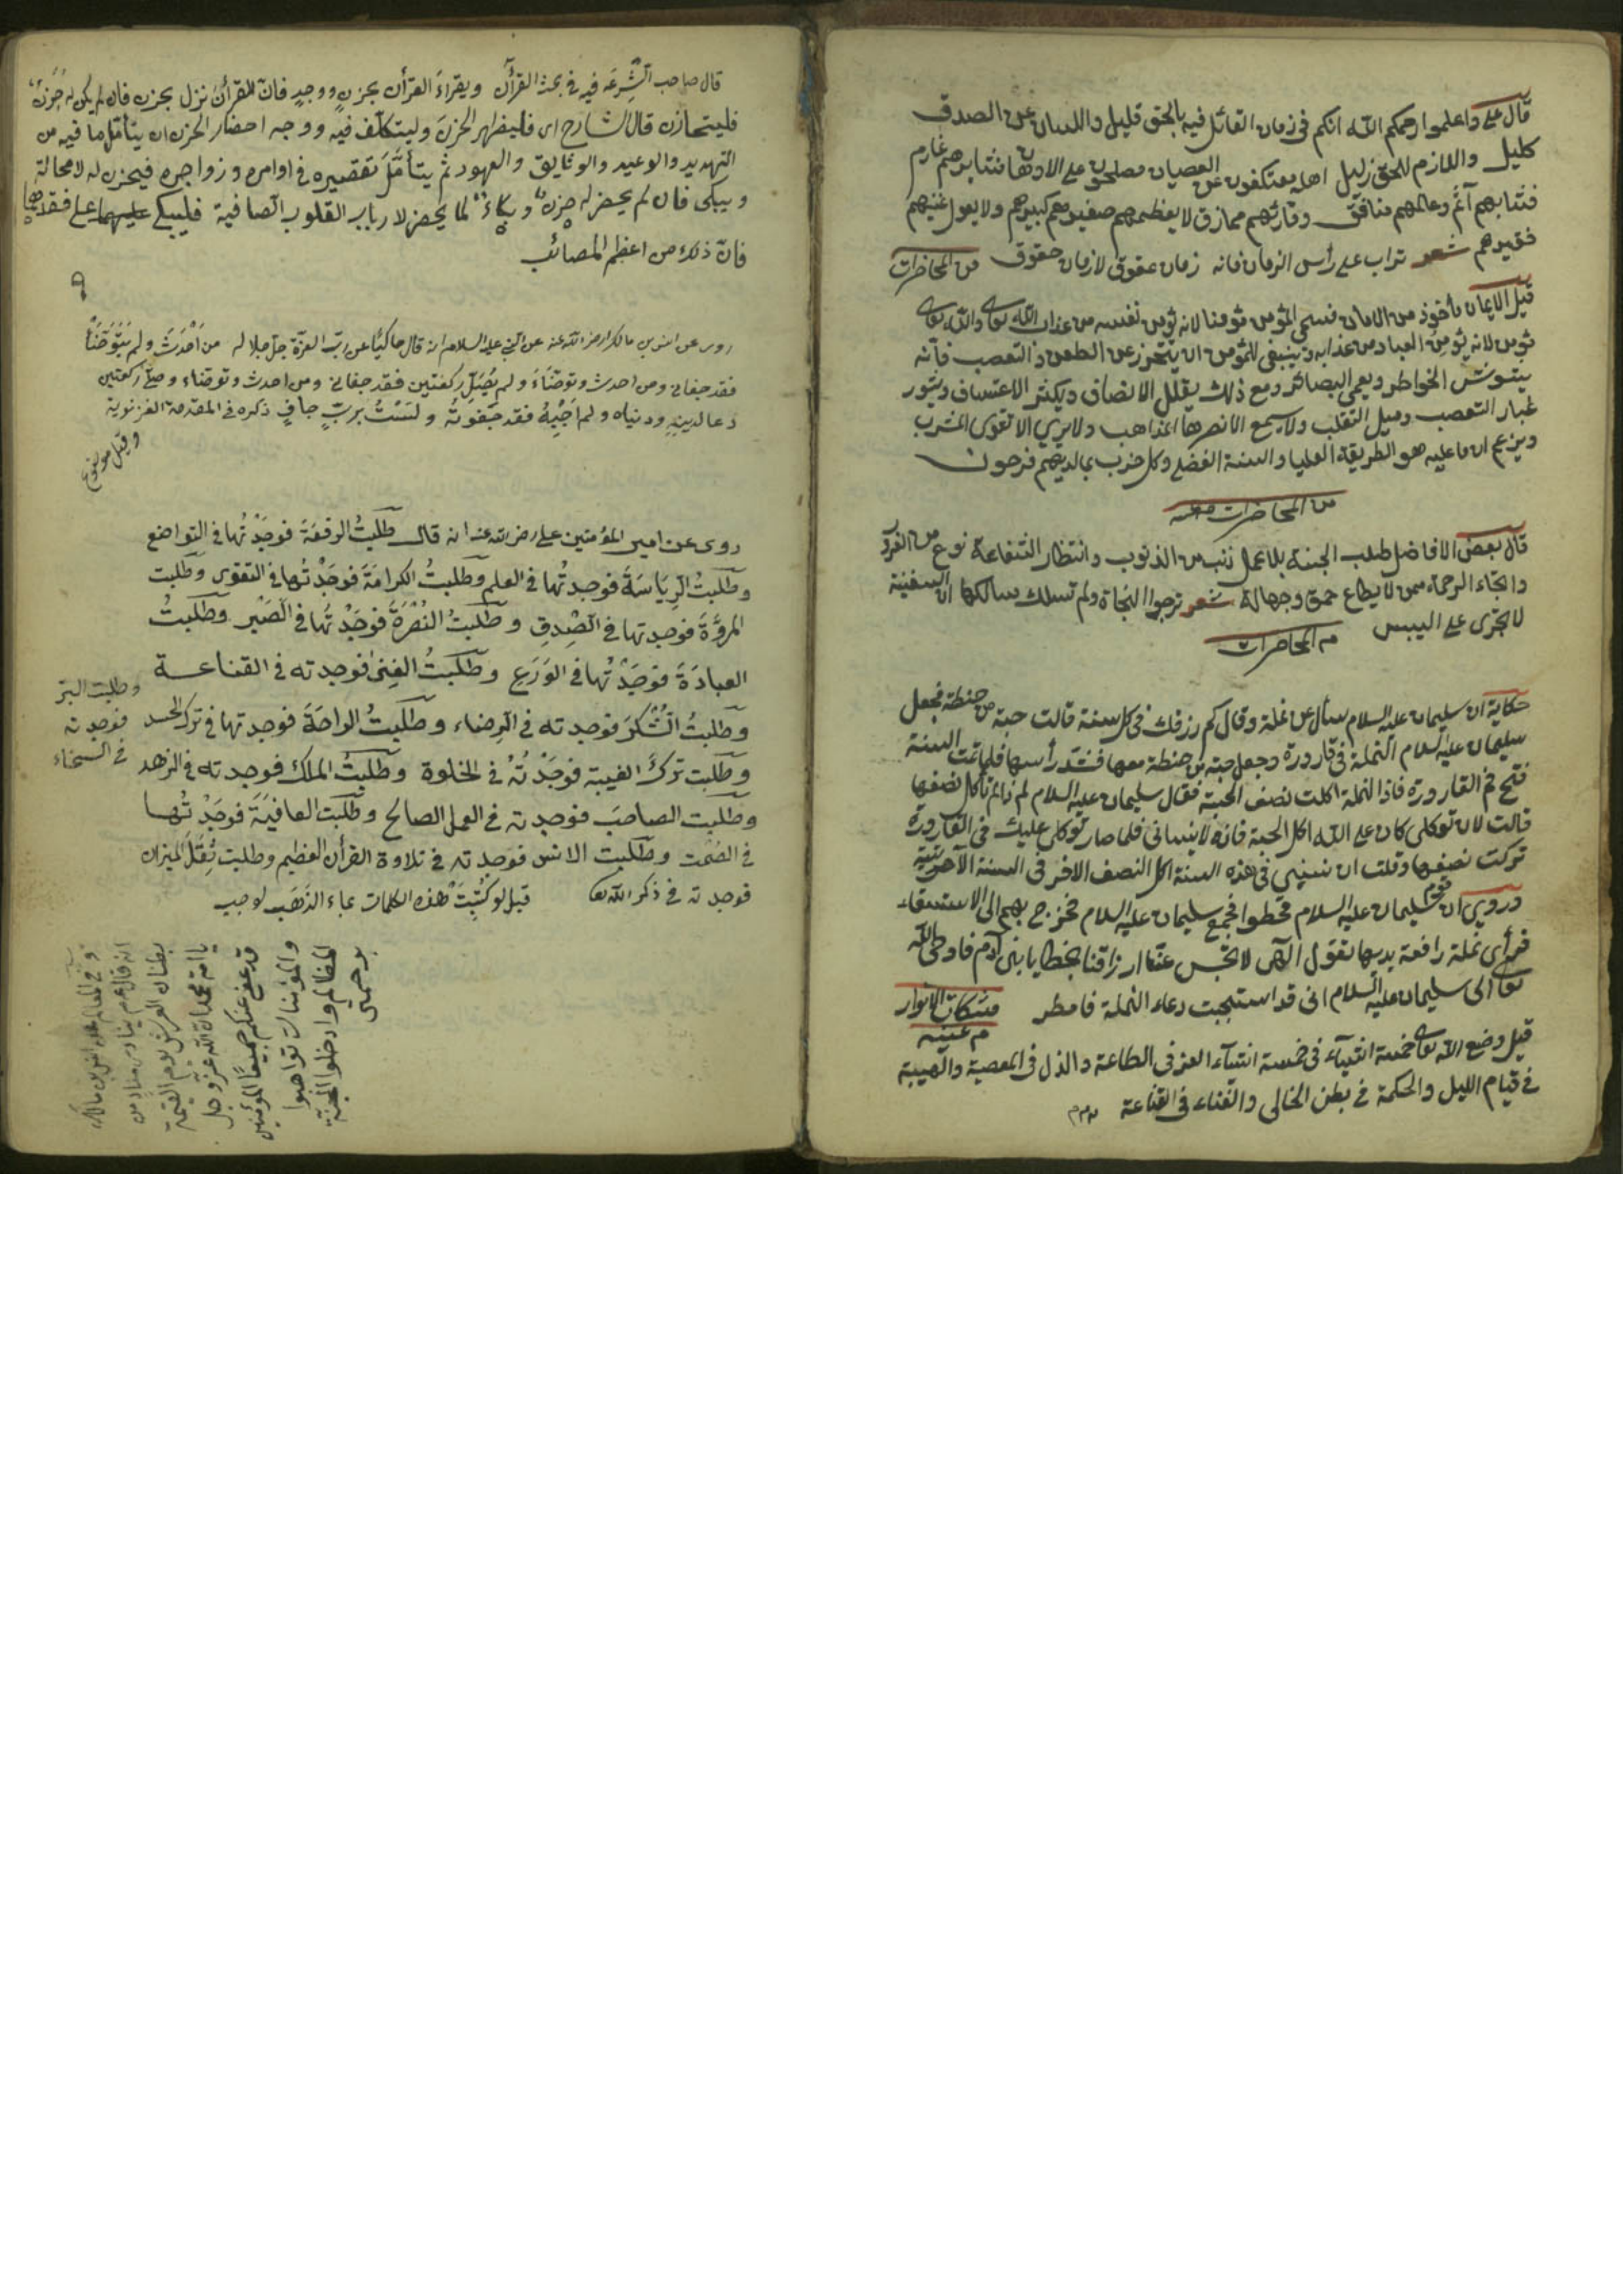 قال علي واعلموا رحمكم الله انكم في زمان القائل فيه بالحق قليل واللسان عن الصدق
كليل واللازم للحق ذليل اهله معتكفون عن العصيان مصطلحون على الادهان فتاهم عارم
فشابهم آثم وعالمهم منافق وقارئهم ممازق لا يعظم صغيرهم كبيرهم ولا يعول غنيهم
فقيرهم شعر تراب على رأس الزمان فانه زمان عقوق لا زمان حقوق من المحاضرات
قيل الايمان مأخوذ من الامان فسمي المؤمن مؤمنا لانه يؤمن نفسه من عذاب الله تعالى والله تعالى
مؤمن لانه يؤمن العباد من عذابه وينبغي للمؤمن ان يتحرز عن الطعن والتعصب فانه
يشوش الخواطر ويعمي البصائر ومع ذلك يقلل الانصاف ويكثر الاعتساف ويثور
غبار التعصب وميل التقلب ولا يسمع الانصرها المذاهب ولا يري الا تقوى المشرب
ويزعم ان ما عليه هو الطريقة العليا والسنة الفضلى وكل حزب بما لديهم فرحون
من المحاضرات معه
قال بعض الافاضل طلب الجنة بلا عمل ذنب من الذنوب وانتظار الشفاعة نوع من الغرور
وارتجاء الرحمة ممن لا يطاع حمق وجهالة شعر ترجوا النجاة ولم تسلك مسالكها ان السفينة
لا تجري على اليبس من المحاضرات
حكاية ان سليمان عليه السلام سأل عن نملة وقال كم رزقك في كل سنة قالت حبة من حنطة فجعل
سليمان عليه السلام النملة في قارورة وجعل حبة من حنطة معها فشد رأسها فلما تمت السنة
فتح فم القارورة فاذا النملة اكلت نصف الحبة فقال سليمان عليه السلام لم تأكل نصفها
قالت لان توكلي كان على الله اكل الحبة فانه لا ينساني فلما صار توكلي عليك في القارورة
تركت نصفها وقلت ان نسيني في هذه السنة اكل النصف الاخر في السنة الآخرة
وروي ان قوم سليمان عليه السلام قحطوا فجمع سليمان عليه السلام فخرج بهم الى الاستسقاء
فرأى نملة رافعة يديها تقول الهي لا تحبس عنا ارزاقنا بخطايا بني آدم فاوحى الله
تعالى الى سليمان عليه السلام اني قد استجبت دعاء النملة فامطر مشكات الانوار
م عينه
قيل وضع الله تعالى خمسة اشيآء في خمسة اشيآء العز في الطاعة والذل في المعصية والهيبة
في قيام الليل والحكمة في بطن الخالي والغناء في القناعة
قال صاحب الشرعة فيه في بحث القرآن ويقراء القرأن بحزن ووجد فان القرأن نزل بحزن فان لم يكن له حزن
فليتحازن قال الشارح اى فليظهر الحزن وليتكلف فيه ووجه احضار الحزن ان يتأمل ما فيه من
التهديد والوعيد والوثايق والعهود ثم يتأمل تقصيره في اوامره وزواجره فيحزن له لا محالة
ويبكى فان لم يحضر له حزن وبكاء كما يحضر لارباب القلوب الصافية فليبكي عليهما على فقدهما
فان ذلك من اعظم المصائب
روى عن انس بن مالك رضي الله عنه عن النبي عليه السلام انه قال حاكيا عن رب العزة جل جلاله من احدث ولم يتوضأ
فقد جفاني ومن احدث وتوضاء ولم يصل ركعتين فقد جفاني ومن احدث وتوضاء وصلى ركعتين
دعا لدينه ودنياه ولم اجبه فقد جفوته ولست برب جاف ذكره في المقدمة الغزنوية
وقيل موضوع
روى عن امير المؤمنين على رضي الله عنه انه قال طلبت الرفعة فوجدتها في التواضع
وطلبت الرياسة فوجدتها في العلم وطلبت الكرامة فوجدتها في التقوى وطلبت
المروة فوجدتها في الصدق وطلبت النصرة فوجدتها في الصبر وطلبت
العبادة فوجدتها في الورع وطلبت الغنى فوجدته في القناعة
وطلبت الشكر فوجدته في الرضاء وطلبت الراحة فوجدتها في ترك الحسد
وطلبت ترك الغيبة فوجدته في الخلوة وطلبت الملك فوجدته في الزهد
وطلبت الصاحب فوجدته في العمل الصالح وطلبت العافية فوجدتها
في الصمت وطلبت الانس فوجدته في تلاوة القرأن العظيم وطلبت ثقل الميزان
فوجدته في ذكر الله تعا قيل لو كتبت هذه الكلمات بماء الذهب لوجب
وطلبت البر
فوجدته
في السخاء
و في المعالم عن انس بن مالك
انه قال عم ينادى مناد من
بطنان العرش يوم القيمة
يا امة محمد ان الله عز وجل
قد عفى عنكم جميعا المؤمنين
والمؤمنات تواهبوا
المظالم وادخلوا الجنة
برحمتي